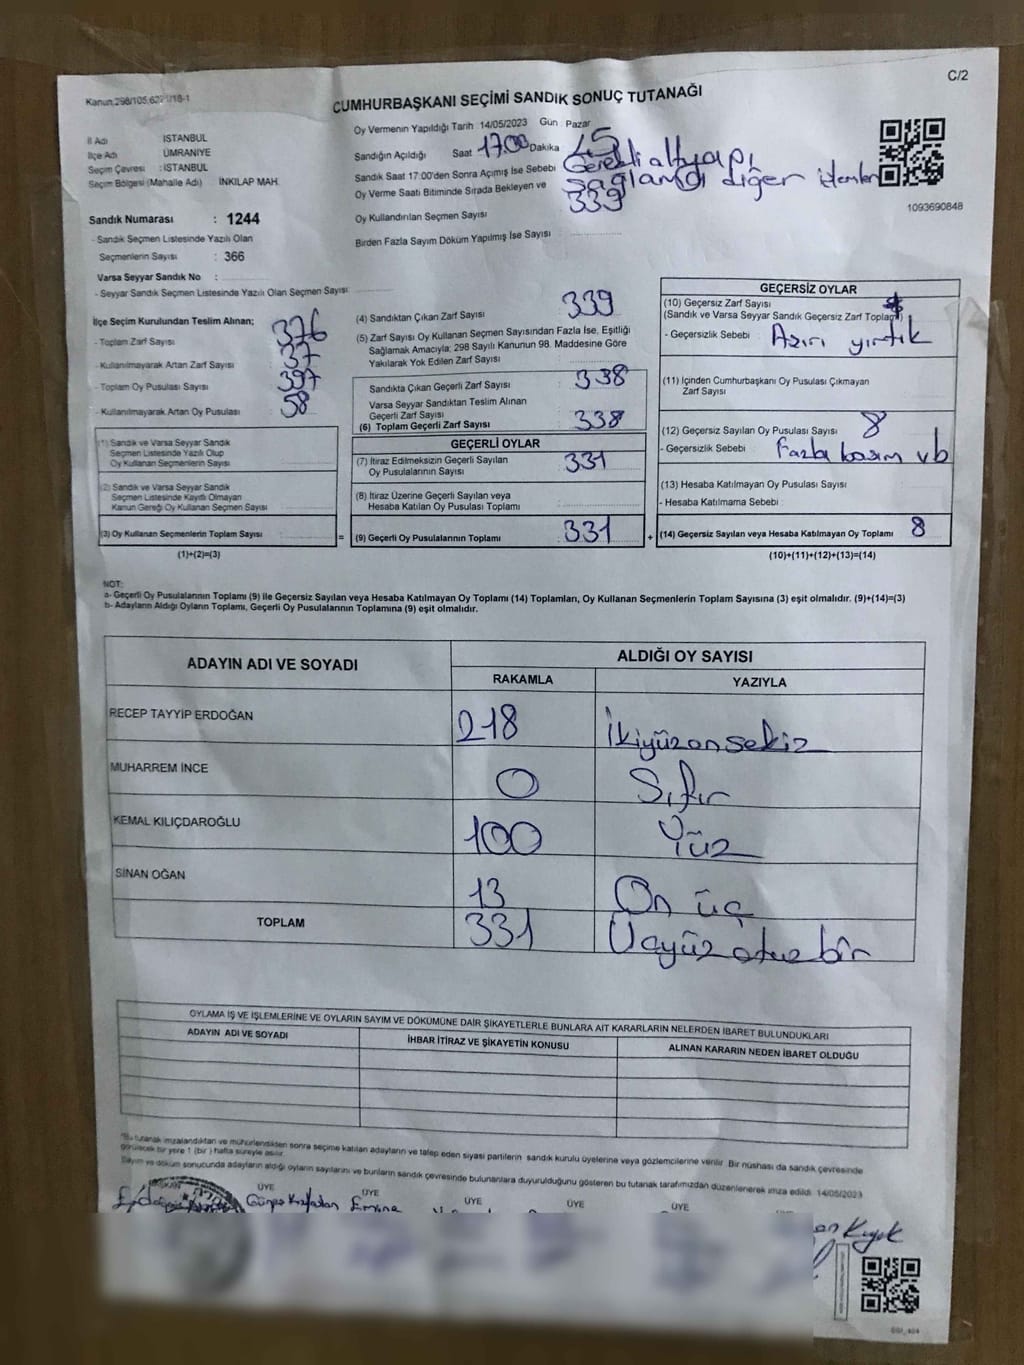 C/2
Kanun:298/105,62
CUMHURBAŞKANI SEÇİMİ SANDIK SONUÇ TUTANAĞI
İl Adı İSTANBUL
İlçe Adı ÜMRANİYE
Seçim Çevresi : İSTANBUL
Seçim Bölgesi (Mahalle Adı) İNKILAP MAH.
Sandık Numarası : 1244
- Sandık Seçmen Listesinde Yazılı Olan
Seçmenlerin Sayısı : 366
Varsa Seyyar Sandık No :
- Seyyar Sandık Seçmen Listesinde Yazılı Olan Seçmen Sayısı
Oy Vermenin Yapıldığı Tarih 14/05/2023 Gün Pazar
Sandığın Açıldığı Saat 17.00 Dakika 45
Sandık Saat 17:00'den Sonra Açımış İse Sebebi Gerekli altyapı
Oy Verme Saati Bitiminde Sırada Bekleyen ve sağlandı diğer işlemler
Oy Kullandırılan Seçmen Sayısı 339
Birden Fazla Sayım Döküm Yapılmış İse Sayısı
1093690848
İlçe Seçim Kurulundan Teslim Alınan;
- Toplam Zarf Sayısı 376
- Kullanılmayarak Artan Zarf Sayısı 37
- Toplam Oy Pusulası Sayısı 397
- Kullanılmayarak Artan Oy Pusulası 58
(1) Sandık ve Varsa Seyyar Sandık
Seçmen Listesinde Yazılı Olup
Oy Kullanan Seçmenlerin Sayısı
(2) Sandık ve Varsa Seyyar Sandık
Seçmen Listesinde Kayıtlı Olmayan
Kanun Gereği Oy Kullanan Seçmen Sayısı
(3) Oy Kullanan Seçmenlerin Toplam Sayısı =
(1)+(2)=(3)
(4) Sandıktan Çıkan Zarf Sayısı 339
(5) Zarf Sayısı Oy Kullanan Seçmen Sayısından Fazla İse, Eşitliği
Sağlamak Amacıyla; 298 Sayılı Kanunun 98. Maddesine Göre
Yakılarak Yok Edilen Zarf Sayısı
Sandıkta Çıkan Geçerli Zarf Sayısı 338
Varsa Seyyar Sandıktan Teslim Alınan
Geçerli Zarf Sayısı
(6) Toplam Geçerli Zarf Sayısı 338
GEÇERLİ OYLAR
(7) İtiraz Edilmeksizin Geçerli Sayılan
Oy Pusulalarının Sayısı 331
(8) İtiraz Üzerine Geçerli Sayılan veya
Hesaba Katılan Oy Pusulası Toplamı
(9) Geçerli Oy Pusulalarının Toplamı 331 +
GEÇERSİZ OYLAR
(10) Geçersiz Zarf Sayısı
(Sandık ve Varsa Seyyar Sandık Geçersiz Zarf Toplamı)
- Geçersizlik Sebebi Aşırı yırtık
(11) İçinden Cumhurbaşkanı Oy Pusulası Çıkmayan
Zarf Sayısı
(12) Geçersiz Sayılan Oy Pusulası Sayısı 8
- Geçersizlik Sebebi Fazla basım vb
(13) Hesaba Katılmayan Oy Pusulası Sayısı
- Hesaba Katılmama Sebebi
(14) Geçersiz Sayılan veya Hesaba Katılmayan Oy Toplamı 8
(10)+(11)+(12)+(13)=(14)
NOT:
a- Geçerli Oy Pusulasının Toplamı (9) ile Geçersiz Sayılan veya Hesaba Katılmayan Oy Toplamı (14) Toplamları, Oy Kullanan Seçmenlerin Toplam Sayısına (3) eşit olmalıdır. (9)+(14)=(3)
b- Adayların Aldığı Oyların Toplamı, Geçerli Oy Pusulalarının Toplamına (9) eşit olmalıdır.
ADAYIN ADI VE SOYADI ALDIĞI OY SAYISI
RAKAMLA YAZIYLA
RECEP TAYYİP ERDOĞAN 218 İkiyüzonsekiz
MUHARREM İNCE 0 Sıfır
KEMAL KILIÇDAROĞLU 100 Yüz
SİNAN OĞAN 13 On üç
TOPLAM 331 Üçyüz otuz bir
OYLAMA İŞ VE İŞLEMLERİNE VE OYLARIN SAYIM VE DÖKÜMÜNE DAİR ŞİKAYETLERLE BUNLARA AİT KARARLARIN NELERDEN İBARET BULUNDUKLARI
ADAYIN ADI VE SOYADI İHBAR İTİRAZ VE ŞİKAYETİN KONUSU ALINAN KARARIN NEDEN İBARET OLDUĞU
*Bu tutanak imzalandıktan ve mühürlendikten sonra seçime katılan adayların ve talep eden siyasi partilerin sandık kurulu üyelerine veya gözlemcilerine verilir. Bir nüshası da sandık çevresinde
görülecek bir yere 1 (bir) hafta süreyle asılır.
Sayım ve döküm sonucunda adayların aldığı oyların sayılarını ve bunların sandık çevresinde bulunanlara duyurulduğunu gösteren bu tutanak tarafımızdan düzenlenerek imza edildi. 14/05/2023
BAŞKAN ÜYE ÜYE ÜYE ÜYE ÜYE
Emine